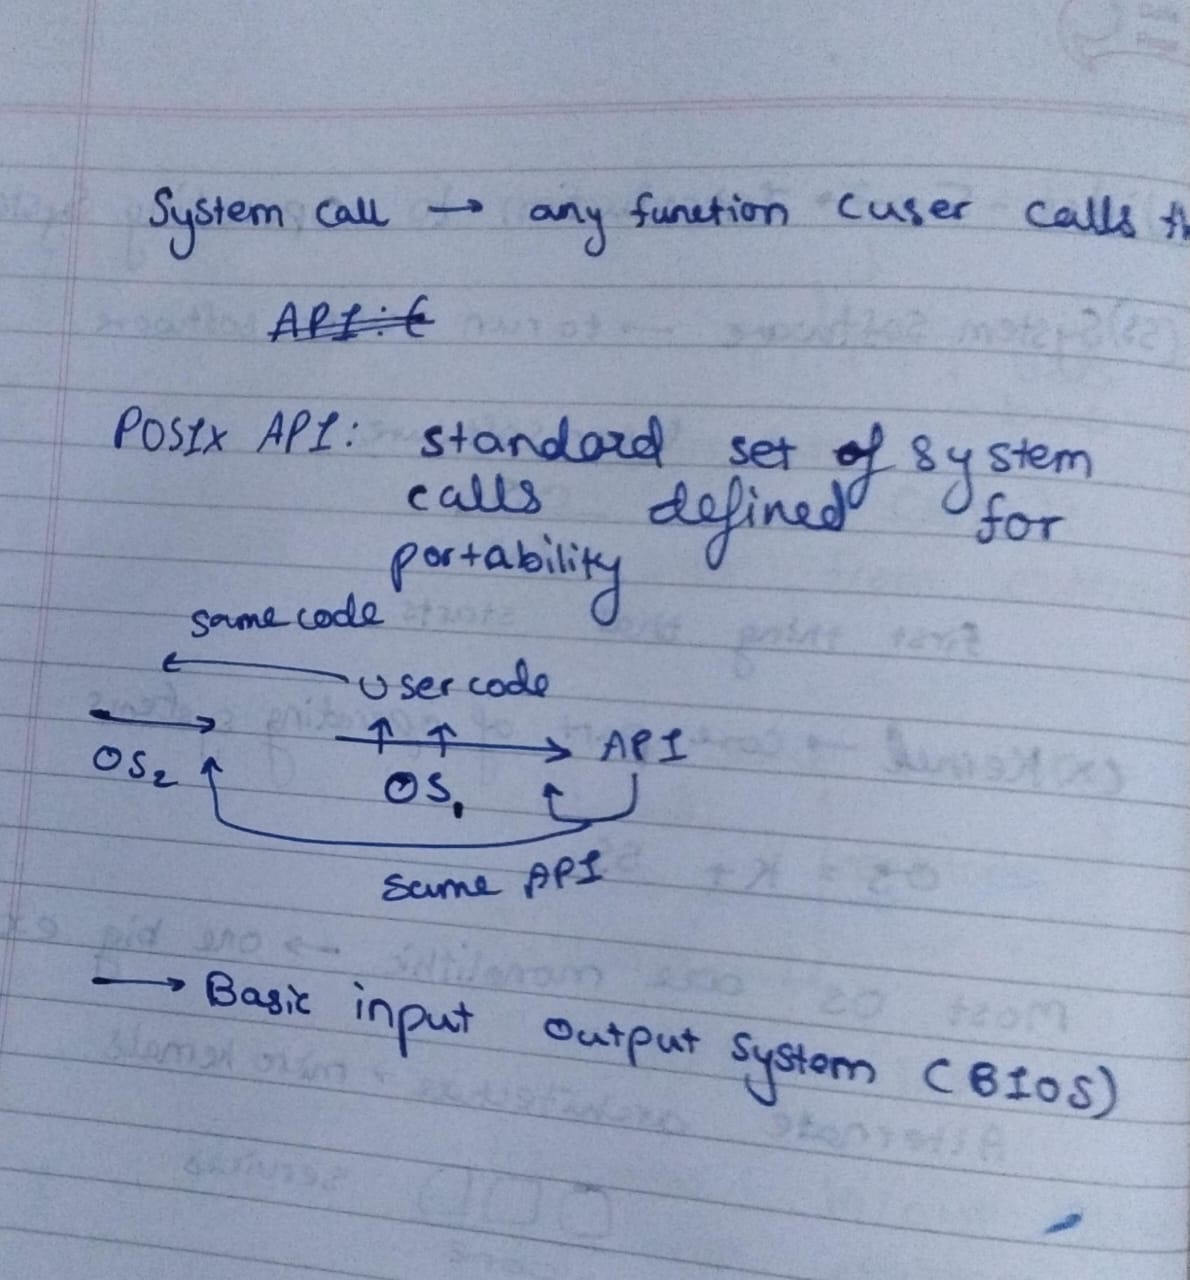 System call → any function (user calls th
API: (
POSIX API: standard set of system
calls defined for
portability
same code
← user code
→ ↑ ↑ → API
OS₂ OS₁
same API
→ Basic input output system (BIOS)